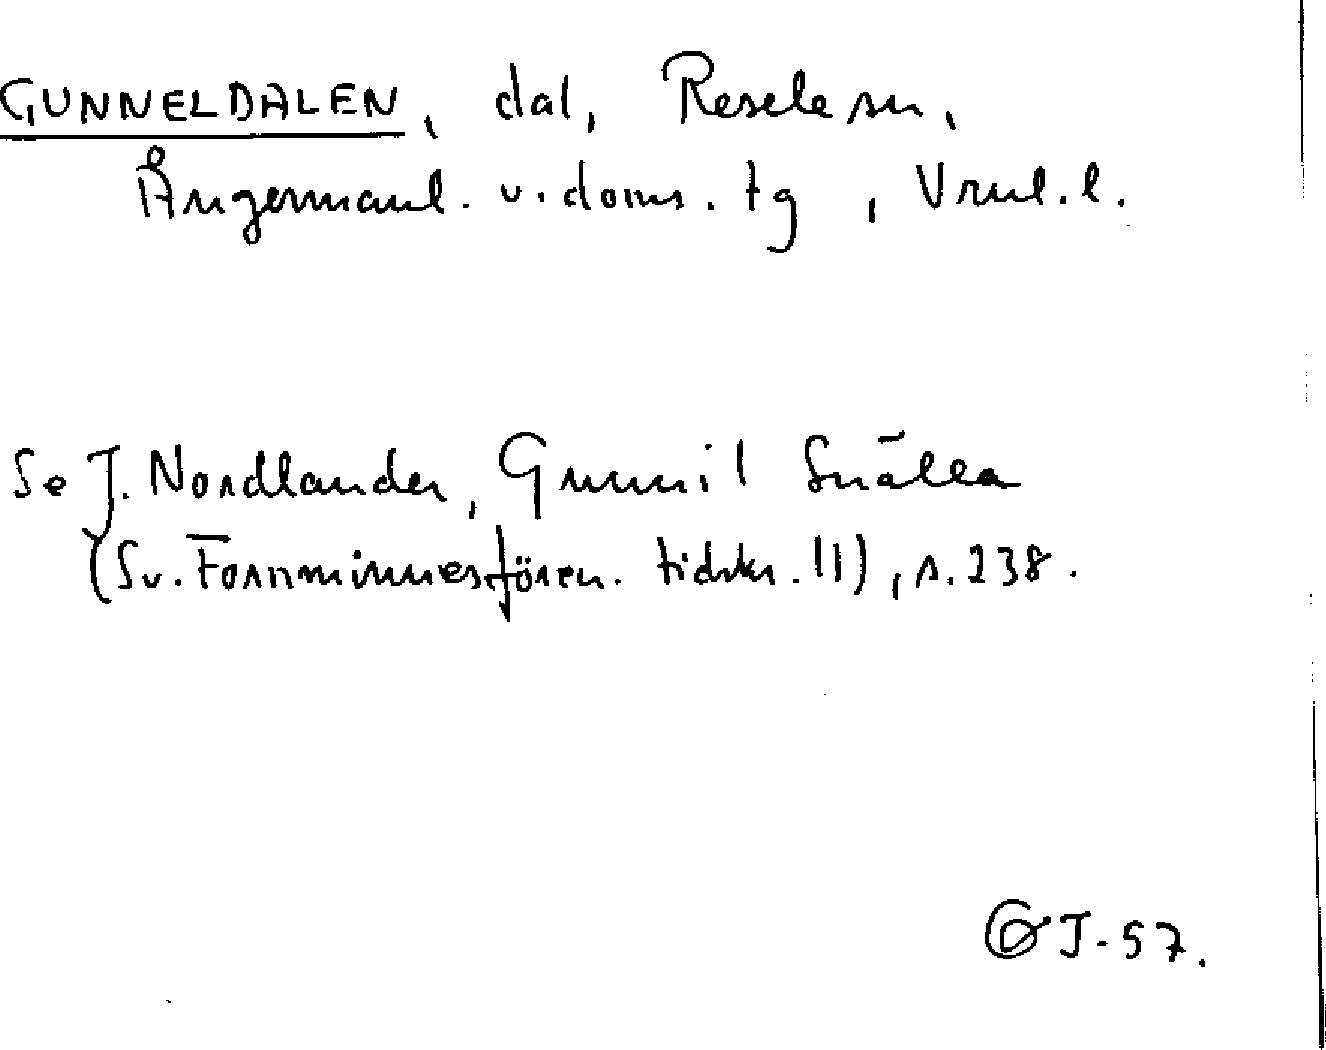 GUNNELDALEN, dal, Resele sn,
Ångermanl. v. doms. tg, Vrnl. l.
Se J. Nordlander, Gunnil Snälla
(Sv. Fornminnesfören. tidskr. 11), s. 238.
J-57.